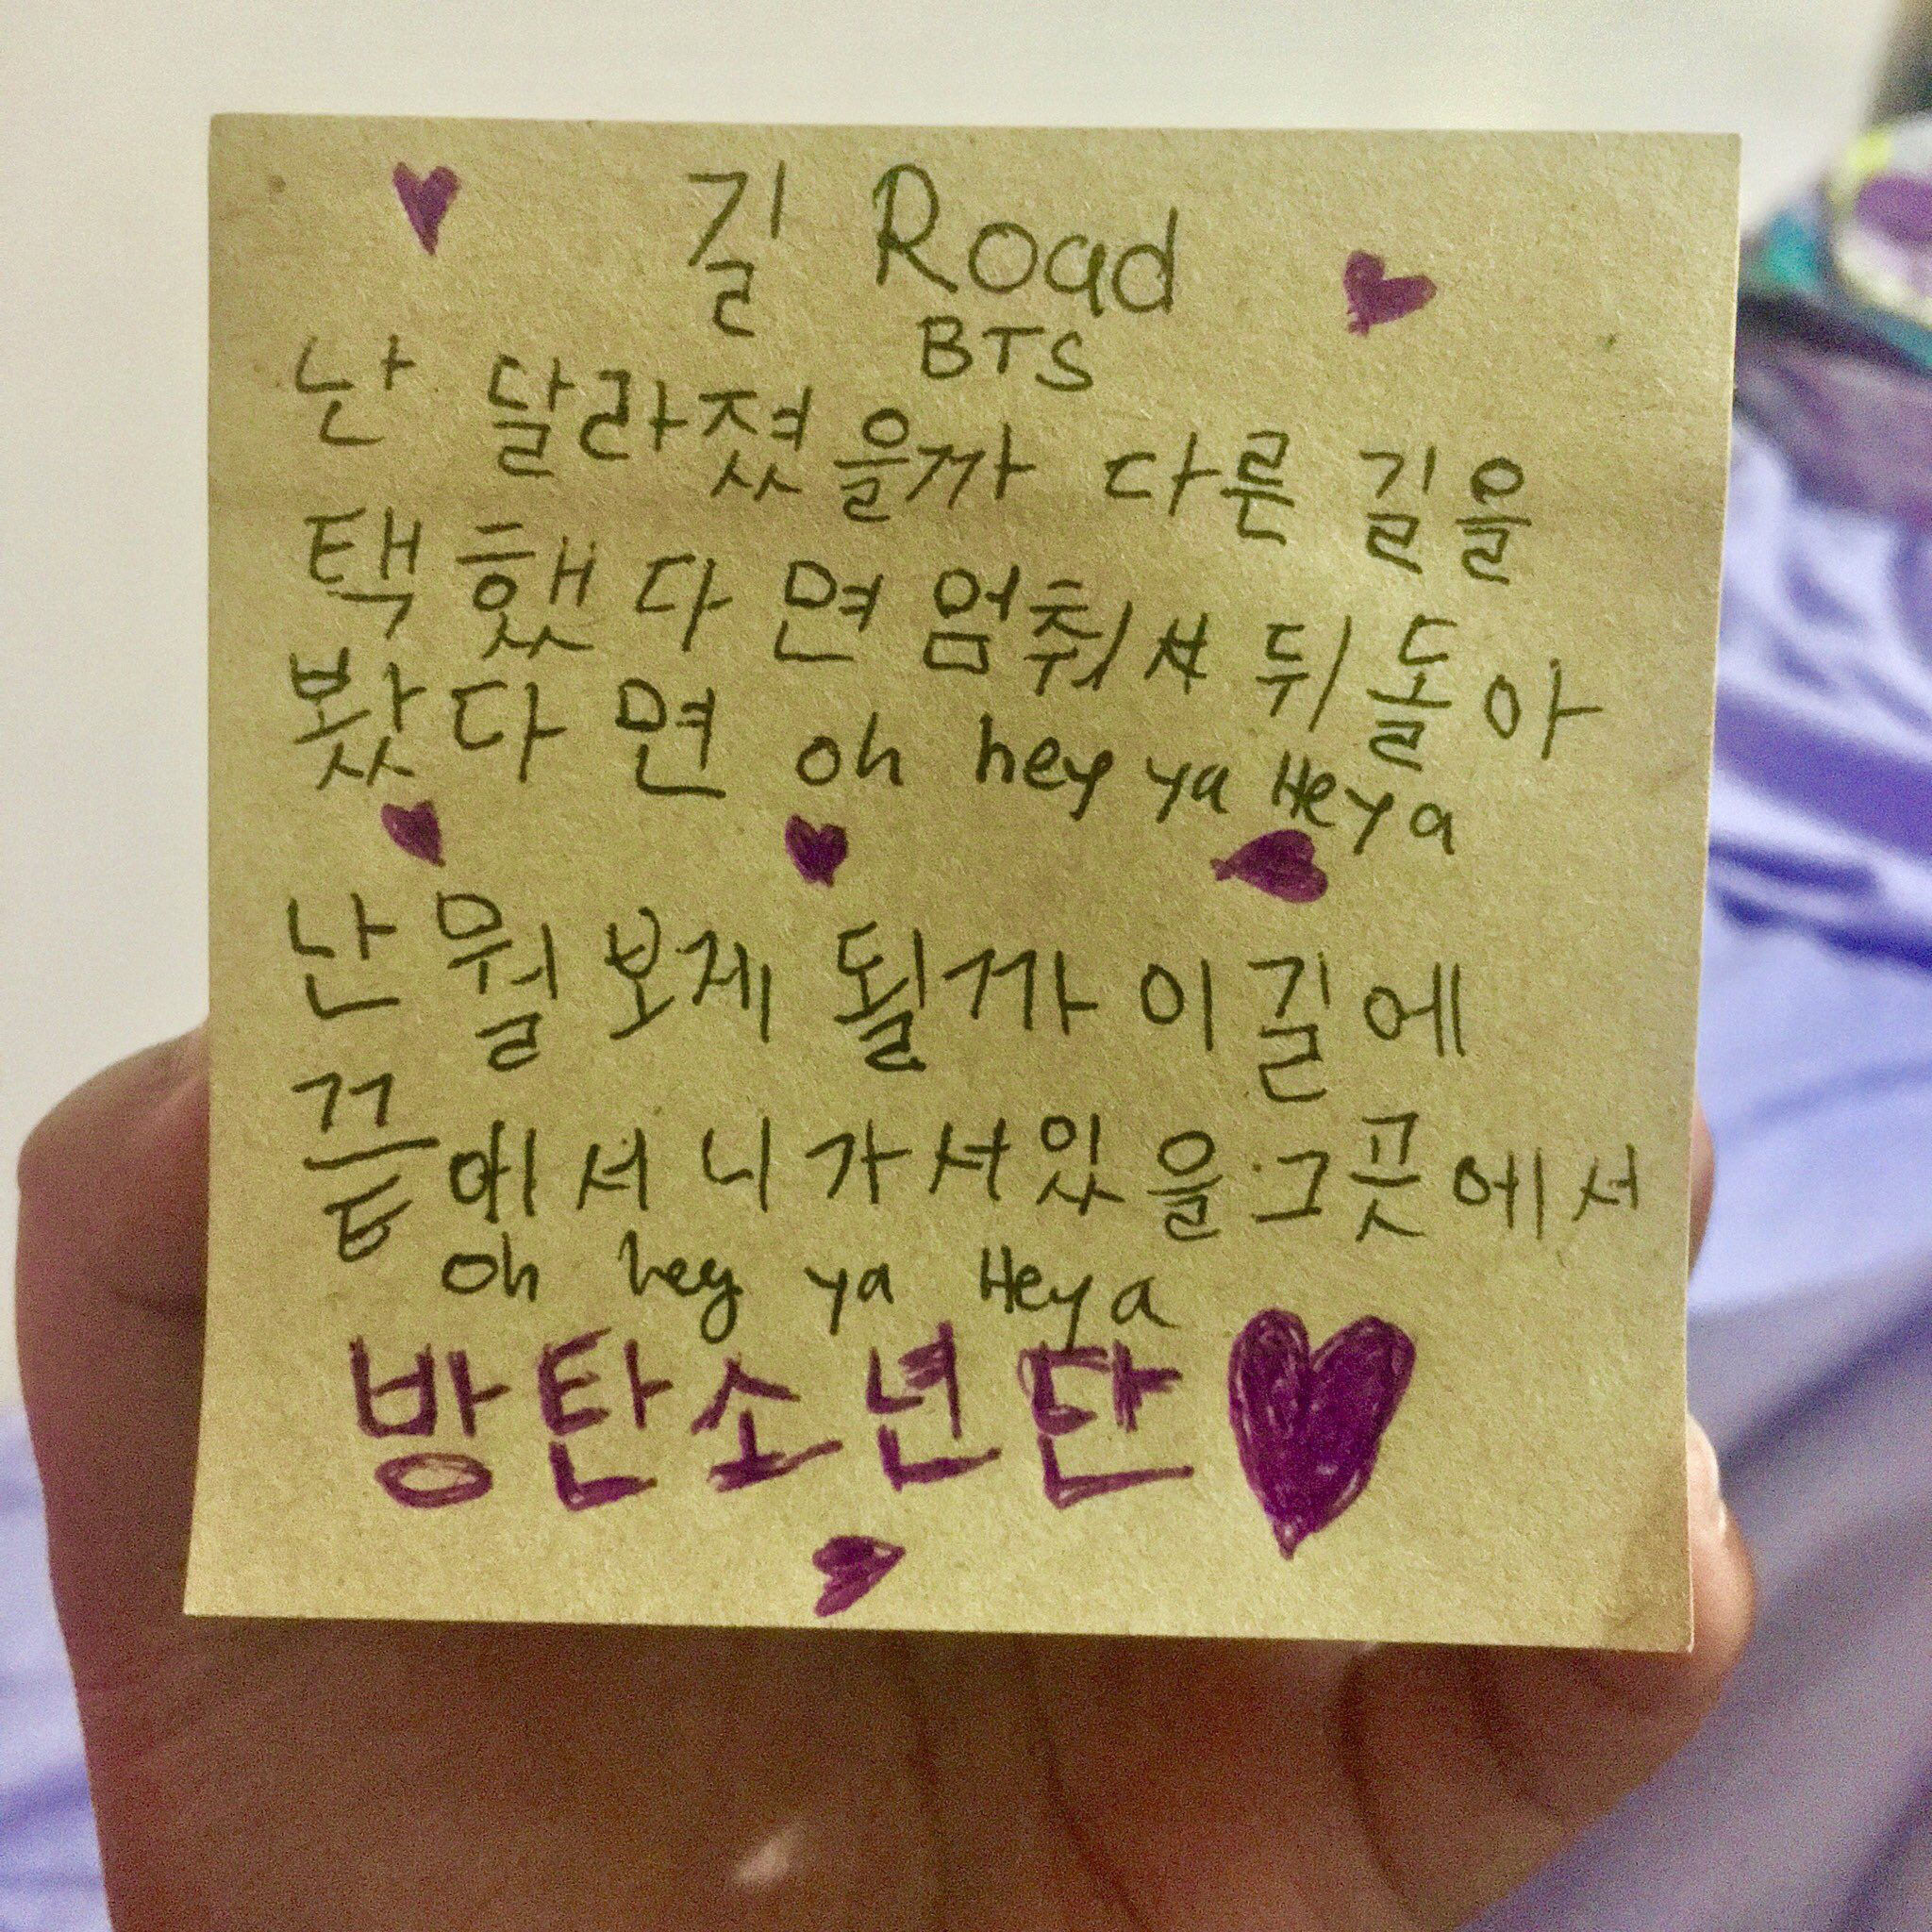 길 Road
BTS
난 달라졌을까 다른 길을
택했다면 멈춰서 뒤돌아
봤다면 oh hey ya Heya
난 뭘 보게 될까 이길에
끝에서 니가 서있을 그곳에서
Oh hey ya Heya
방탄소년단